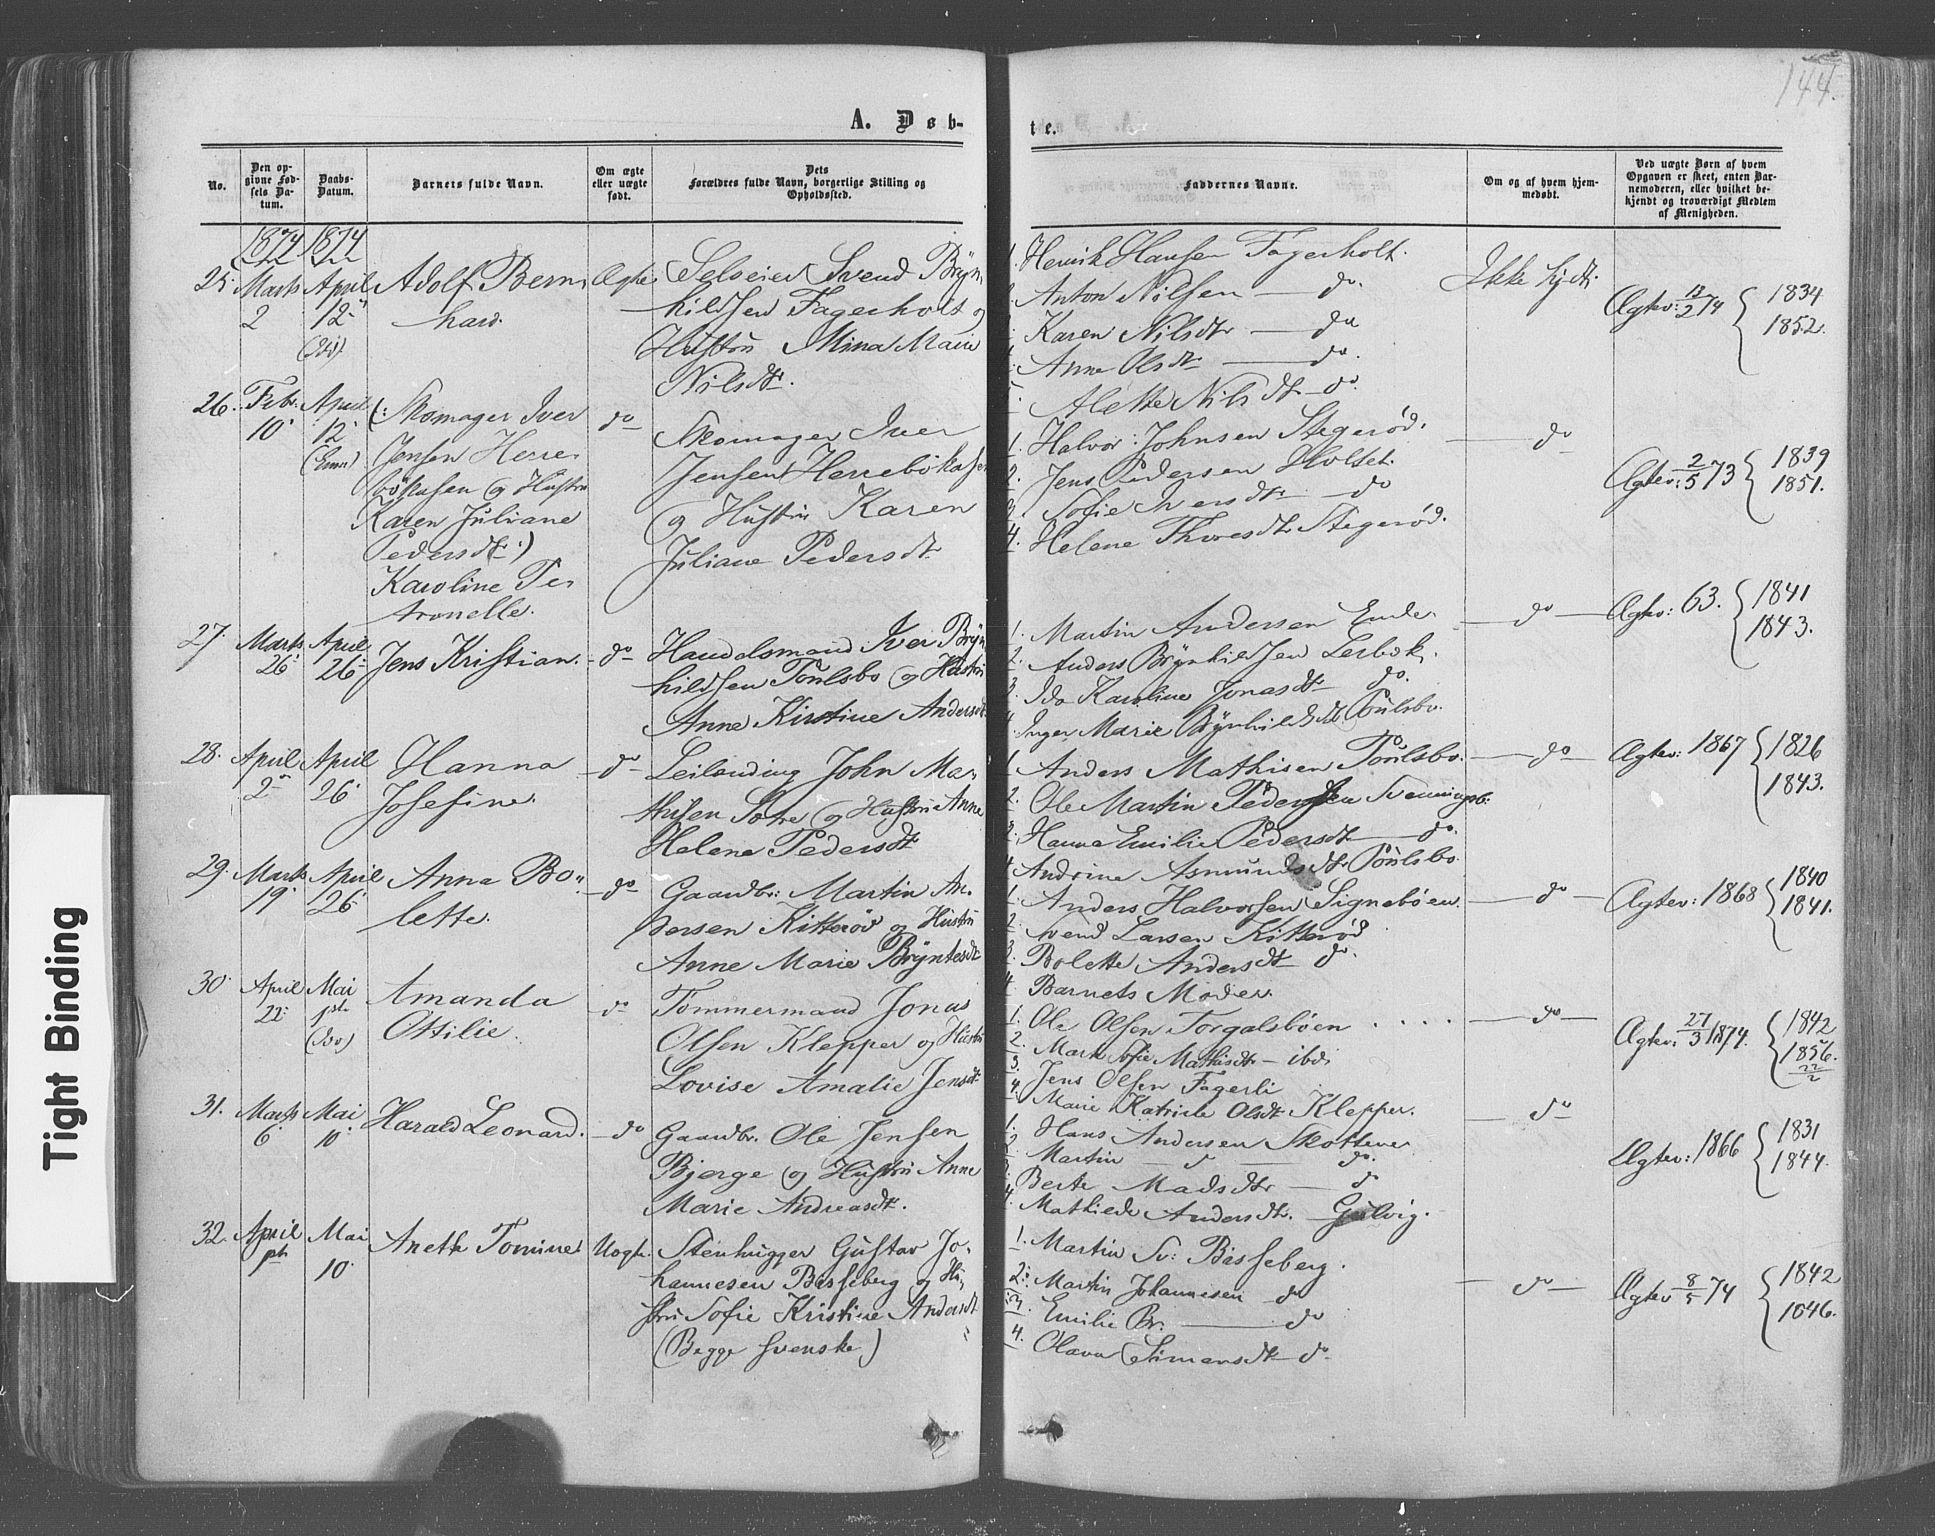 144.
A. Døb-
te.
No.
Den op-
givne Fød-
sels Da-
tum.
Daabs-
Datum.
Barnets fulde Navn.
Om ægte
eller uægte
født.
Dets
Forældres fulde Navn, borgerlige Stilling og
Opholdssted.
Faddernes Navne.
Om og af hvem hjem-
medøbt.
Ved uægte Børn af hvem
Opgaven er skeet, enten Bar-
nemoderen, eller hvilket be-
kjendt og troværdigt Medlem
af Menigheden.
1874 1874
25. Marts 2 April 12
Adolf Bern-
hard.
Ægte
Selveier Svend Bryn-
hildsen Fagerholt og
Hustru Mina Marie
Nilsdtr.
1. Henrik Hansen Fagerholt.
2. Anton Nilsen — do.
3. Karen Nilsdtr — do
4. Anne Olsdtr — do.
5. Alette Nilsdtr do.
Ikke hjdt.
Ægtev: 13/2 74 { 1834
1852.
26. Febr. 10 April 12 (Emn)
(: Skomager Iver
Jensen Herre-
bøkasen og Hustru
Karen Juliane
Pedersdtr:)
Karoline Pe-
tronelle.
do
Skomager Iver
Jensen Herrebøkasen
og Hustru Karen
Juliane Pedersdtr
1. Halvor Johnsen Stegerød.
2. Jens Pedersen Holset.
3. Sofie Iversdtr — do
4. Helene Thoresdtr Stegerød.
do
Ægtev: 2/5 73 { 1839
1851.
27. Marts 26 April 26
Jens Kristian.
do
Handelsmand Iver Bryn-
hildsen Poulsbo og Hustru
Anne Kirstine Andersdtr
1. Martin Andersen Ende.
2. Anders Brynhildsen Lerbæk.
3. Ida Karoline Jonasdtr do.
4. Inger Marie Brynhildsdtr Poulsbo.
do
Ægtev: 63. { 1841
1843.
28. April 2 April 26
Hanna
Josefine.
do
Leilending John Ma-
thisen Sotre og Hustru Anne
Helene Pedersdtr
1. Anders Mathisen Poulsbo.
2. Ole Martin Pedersen Svenningsb:
3. Hanna Emilie Pedersdtr — do.
4. Andrine Asmundsdtr Poulsbo.
do
Ægtev: 1867 { 1826
1843.
29. Marts 19 April 26
Anna Bo-
lette.
do
Gaardbr: Martin An-
dersen Kitterød og Hustru
Anne Marie Bryntesdtr
1. Anders Halvorsen Signebøen.
2. Svend Larsen Kitterød
3. Bolette Andersdtr do.
4. Barnets Moder.
do
Ægtev: 1868 { 1840
1841.
30. April 22 Mai 1ste
Amanda
Ottilie.
do
Tømmermand Jonas
Olsen Klepper og Hustru
Lovise Amalie Jensdtr
1. Ole Olsen Torgalsbøen . . . .
2. Mari Sofie Mathisdtr — ibd.
3. Jens Olsen Fagerli
4. Marie Katrine Olsdtr Klepper.
do
Ægtev: 27/3 1874. { 1842
1856.
22/2
31. Marts 6 Mai 10.
Harald Leonard.
do
Gaardbr. Ole Jensen
Bjerge og Hustru Anne
Marie Andreasdtr.
1. Hans Andersen Skottene
2. Martin do — do.
3. Berte Madsdtr — do
4. Mathilde Andersdtr. Gulvig.
do
Ægtev: 1866 { 1831
1844.
32. April Mai 10.
Anette Tomine
Uægte.
Stenhugger Gustav Jo-
hannesen Basseberg og Hu-
stru Sofie Kristine Andersdtr
(Begge svenske)
1. Martin Sv: Basseberg.
2. Martin Johannesen do
3. Emilie Br. — do
4. Olava Simensdtr do
do
Ægtev 8/5 74 { 1842
1846.
Tight Binding